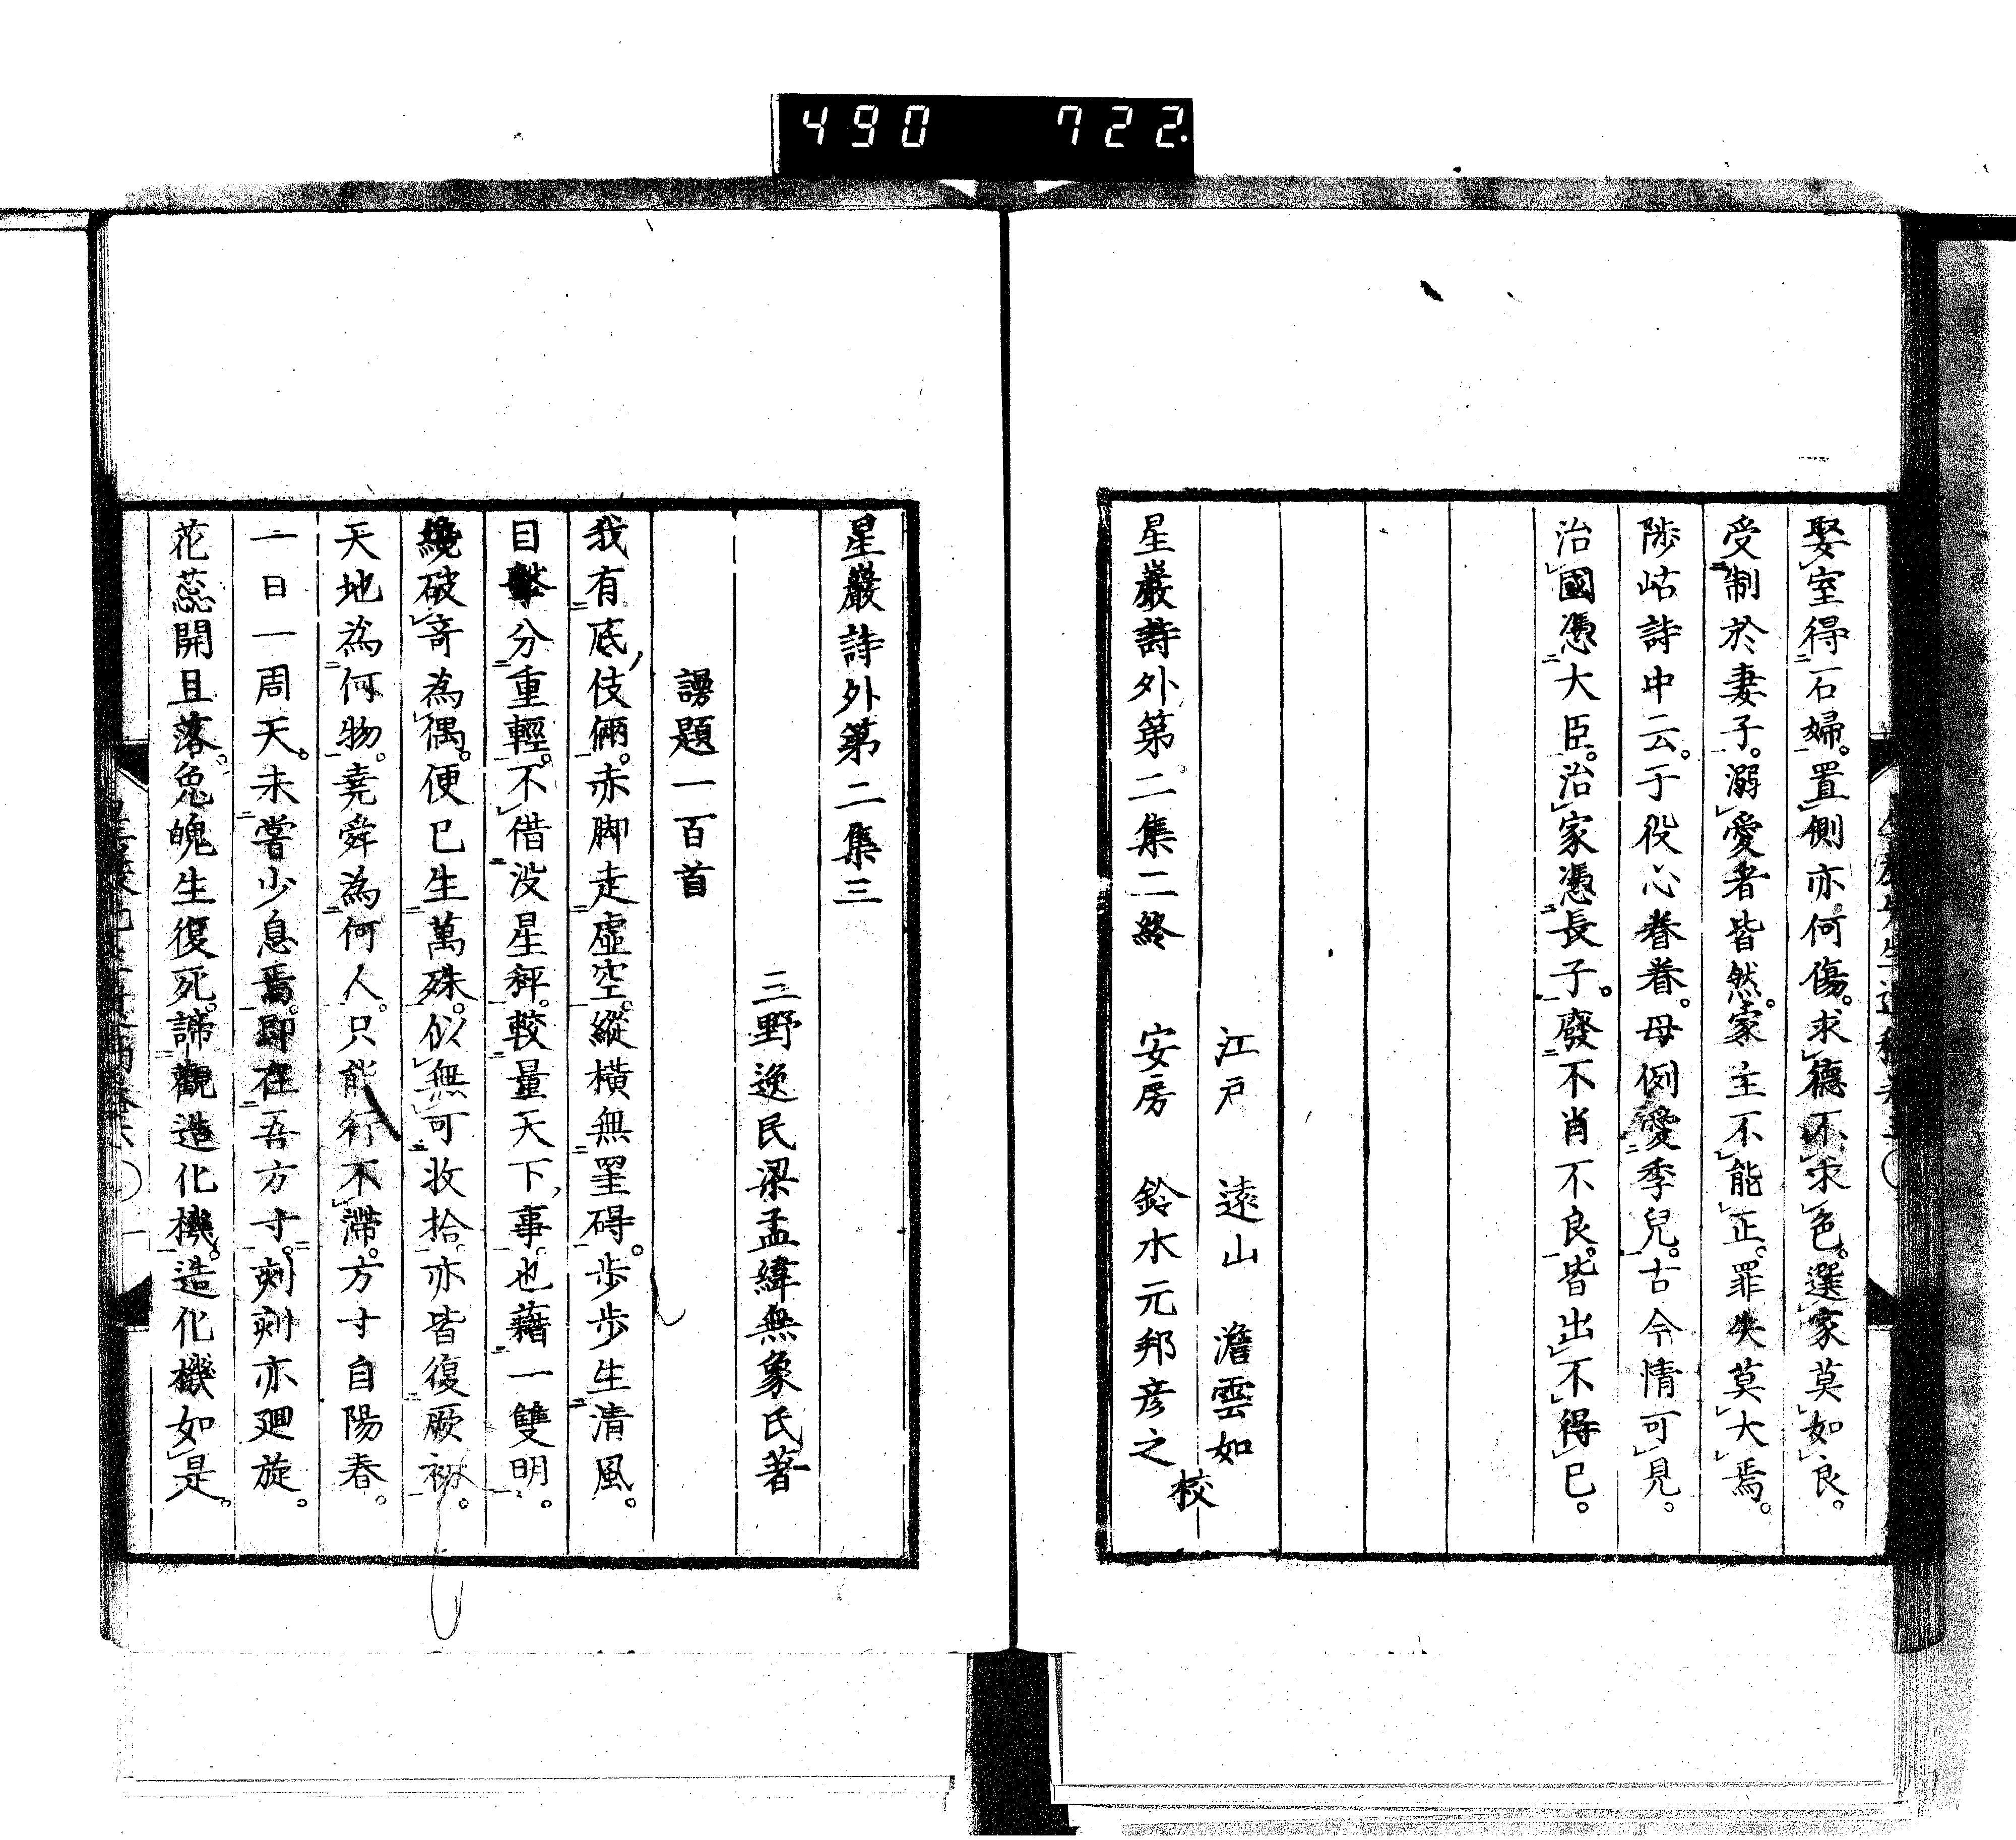 490 722
娶室得石婦。置側亦何傷。求德不求色。選家莫如良。
受制於妻子。溺愛者皆然。家主不能正。罪失莫大焉。
陟岵詩中云。于役心眷眷。母例愛季兒。古今情可見。
治國憑大臣。治家憑長子。廢不肖不良。皆出不得已。
江戶 遠山 澹雲如
星巖詩外第二集二終 安房 鈴木元邦彥之
校
星巖詩外第二集三
三野逸民梁孟緯無象氏著
謾題一百首
我有底伎倆。赤脚走虛空。縱橫無罣碍。步步生清風。
目擊分重輕。不借沒星秤。較量天下事。也藉一雙明。
纔破奇為偶。便已生萬殊。似無可收拾。亦皆復厥初。
天地為何物。堯舜為何人。只能行不滯。方寸自陽春。
一日一周天。未嘗少息焉。即在吾方寸。刻刻亦廻旋。
花蕊開且落。兔魄生復死。諦觀造化機。造化機如是。